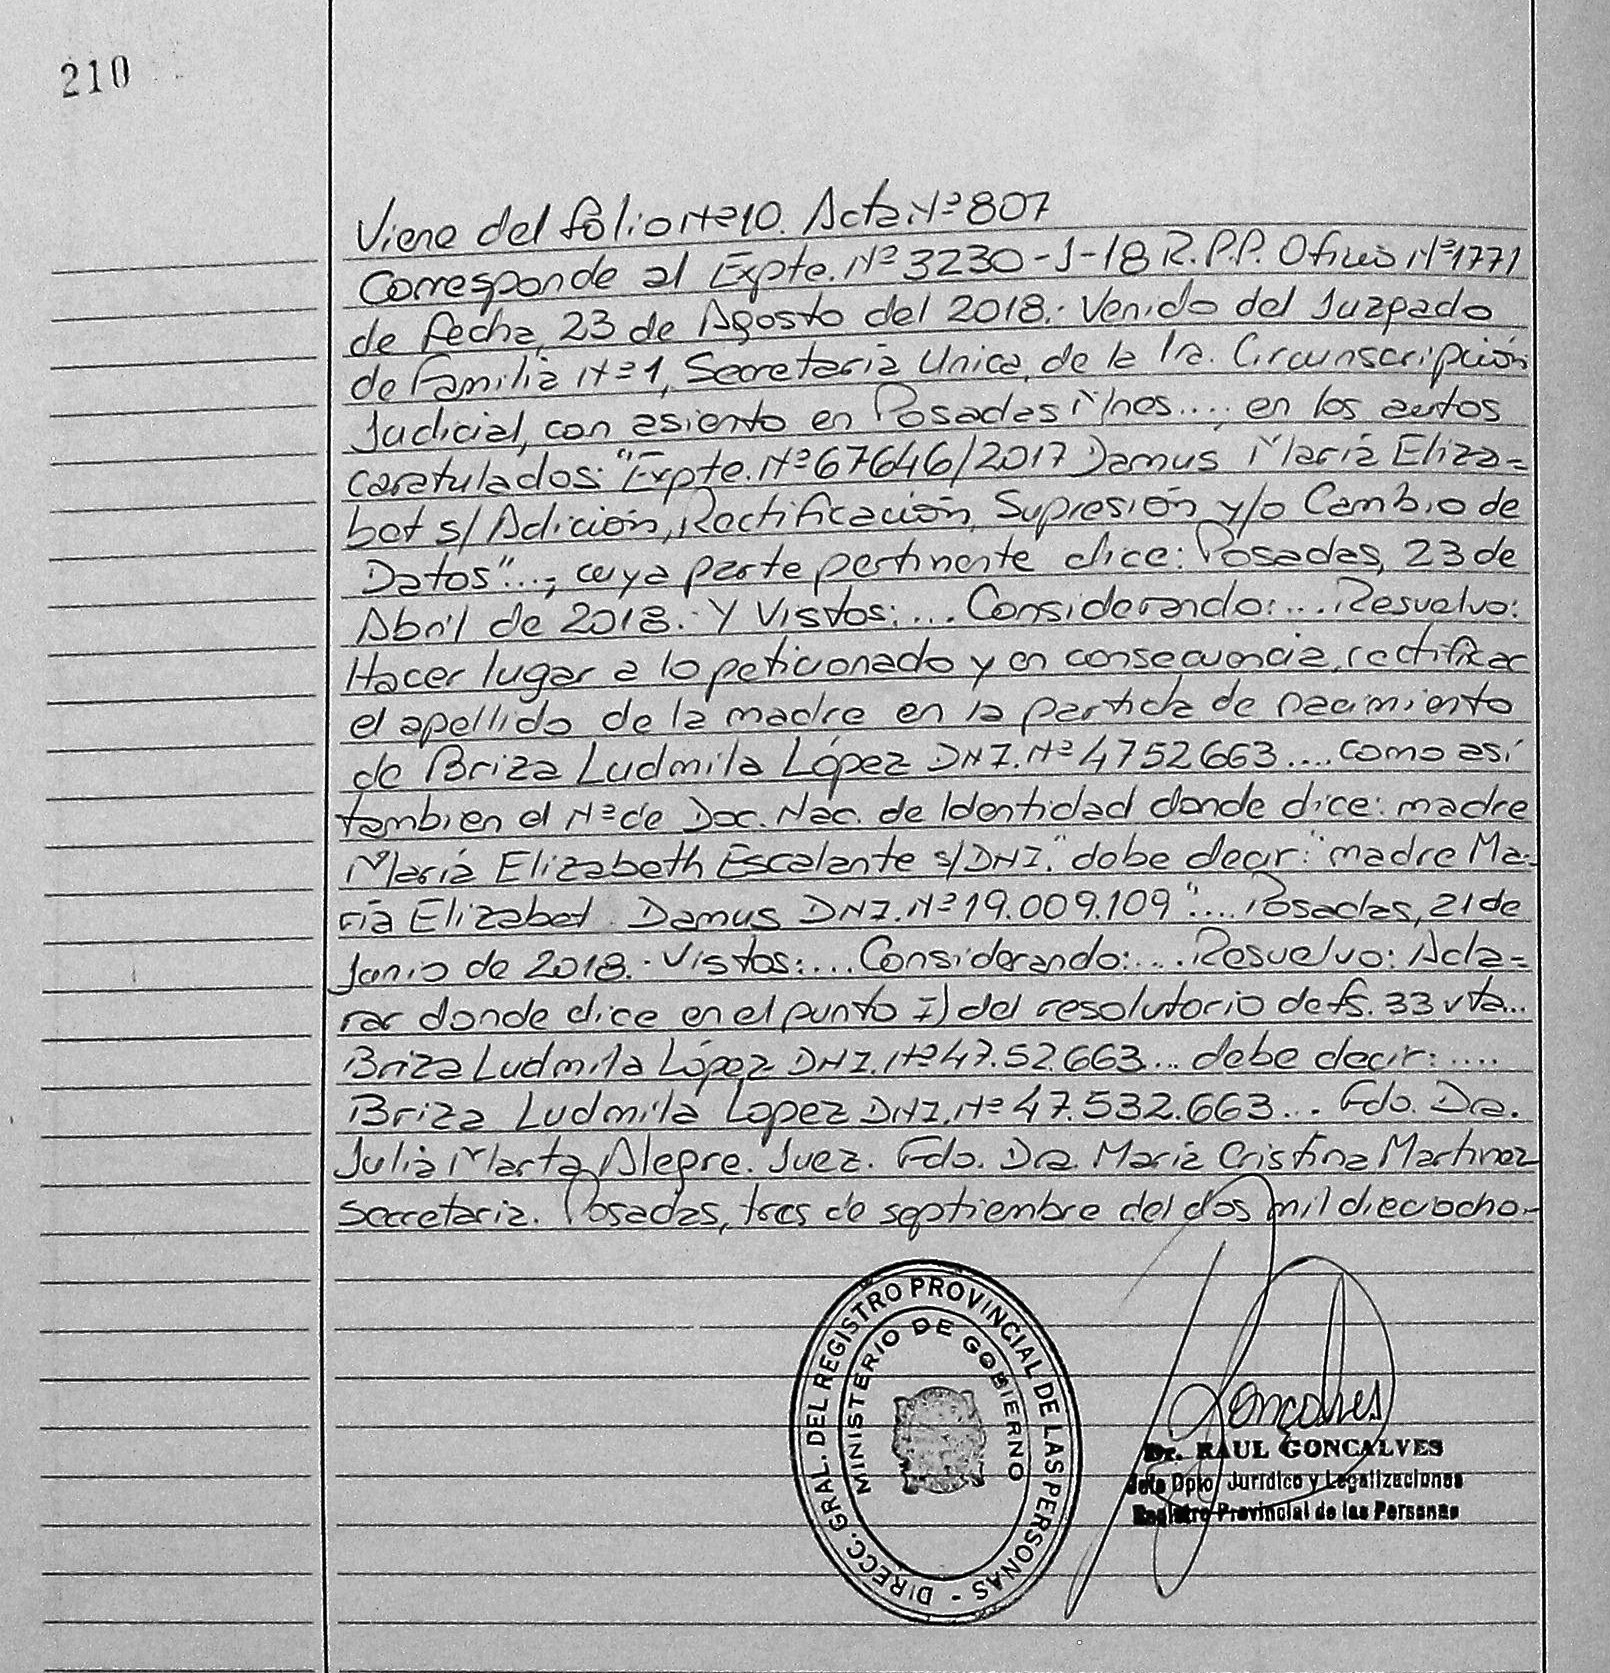 210
Viene del folio Nº 10. Acta Nº 807
Corresponde al Expte. Nº 3230-J-18 R.P.P. Oficio Nº 1771
de fecha, 23 de Agosto del 2018.- Venido del Juzgado
de Familia Nº 1, Secretaría Unica, de la 1ra. Circunscripción
Judicial, con asiento en Posadas Mnes.... en los autos
caratulados: "Expte. Nº 67646/2017 Damus María Eliza=
bet s/ Adición, Rectificación, Supresión y/o Cambio de
Datos"..., cuya parte pertinente dice: Posadas, 23 de
Abril de 2018.- Y Vistos:... Considerando:... Resuelvo:
Hacer lugar a lo peticionado y en consecuencia, rectificar
el apellido de la madre en la partida de nacimiento
de Briza Ludmila López DNI. Nº 4752663.... como así
tambien el Nº de Doc. Nac. de Identidad donde dice: madre
María Elizabeth Escalante s/DNI." debe decir: "madre Ma-
ría Elizabet Damus DNI. Nº 19.009.109".... Posadas, 21 de
Junio de 2018.- Vistos:... Considerando:... Resuelvo: Acla=
rar donde dice en el punto I) del resolutorio de fs. 33 vta...
Briza Ludmila López DNI. Nº 47.52.663... debe decir:....
Briza Ludmila Lopez DNI. Nº 47.532.663... Fdo. Dra.
Julia Marta Alegre. Juez. Fdo. Dra. María Cristina Martinez
Secretaria. Posadas, tres de septiembre del dos mil dieciocho.-
DIRECC. GRAL. DEL REGISTRO PROVINCIAL DE LAS PERSONAS -
MINISTERIO DE GOBIERNO
Goncalves
Dr. RAUL GONCALVES
Jefe Dpto. Jurídico y Legalizaciones
Registro Provincial de las Personas